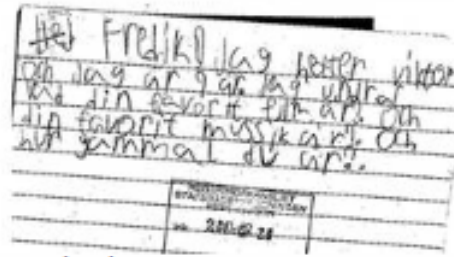 Hej Fredik! Jag heter viktor
och Jag är 9 år. Jag undra
vad din favorit film är? och
din favorit mussik är? och
hur gammal du är?